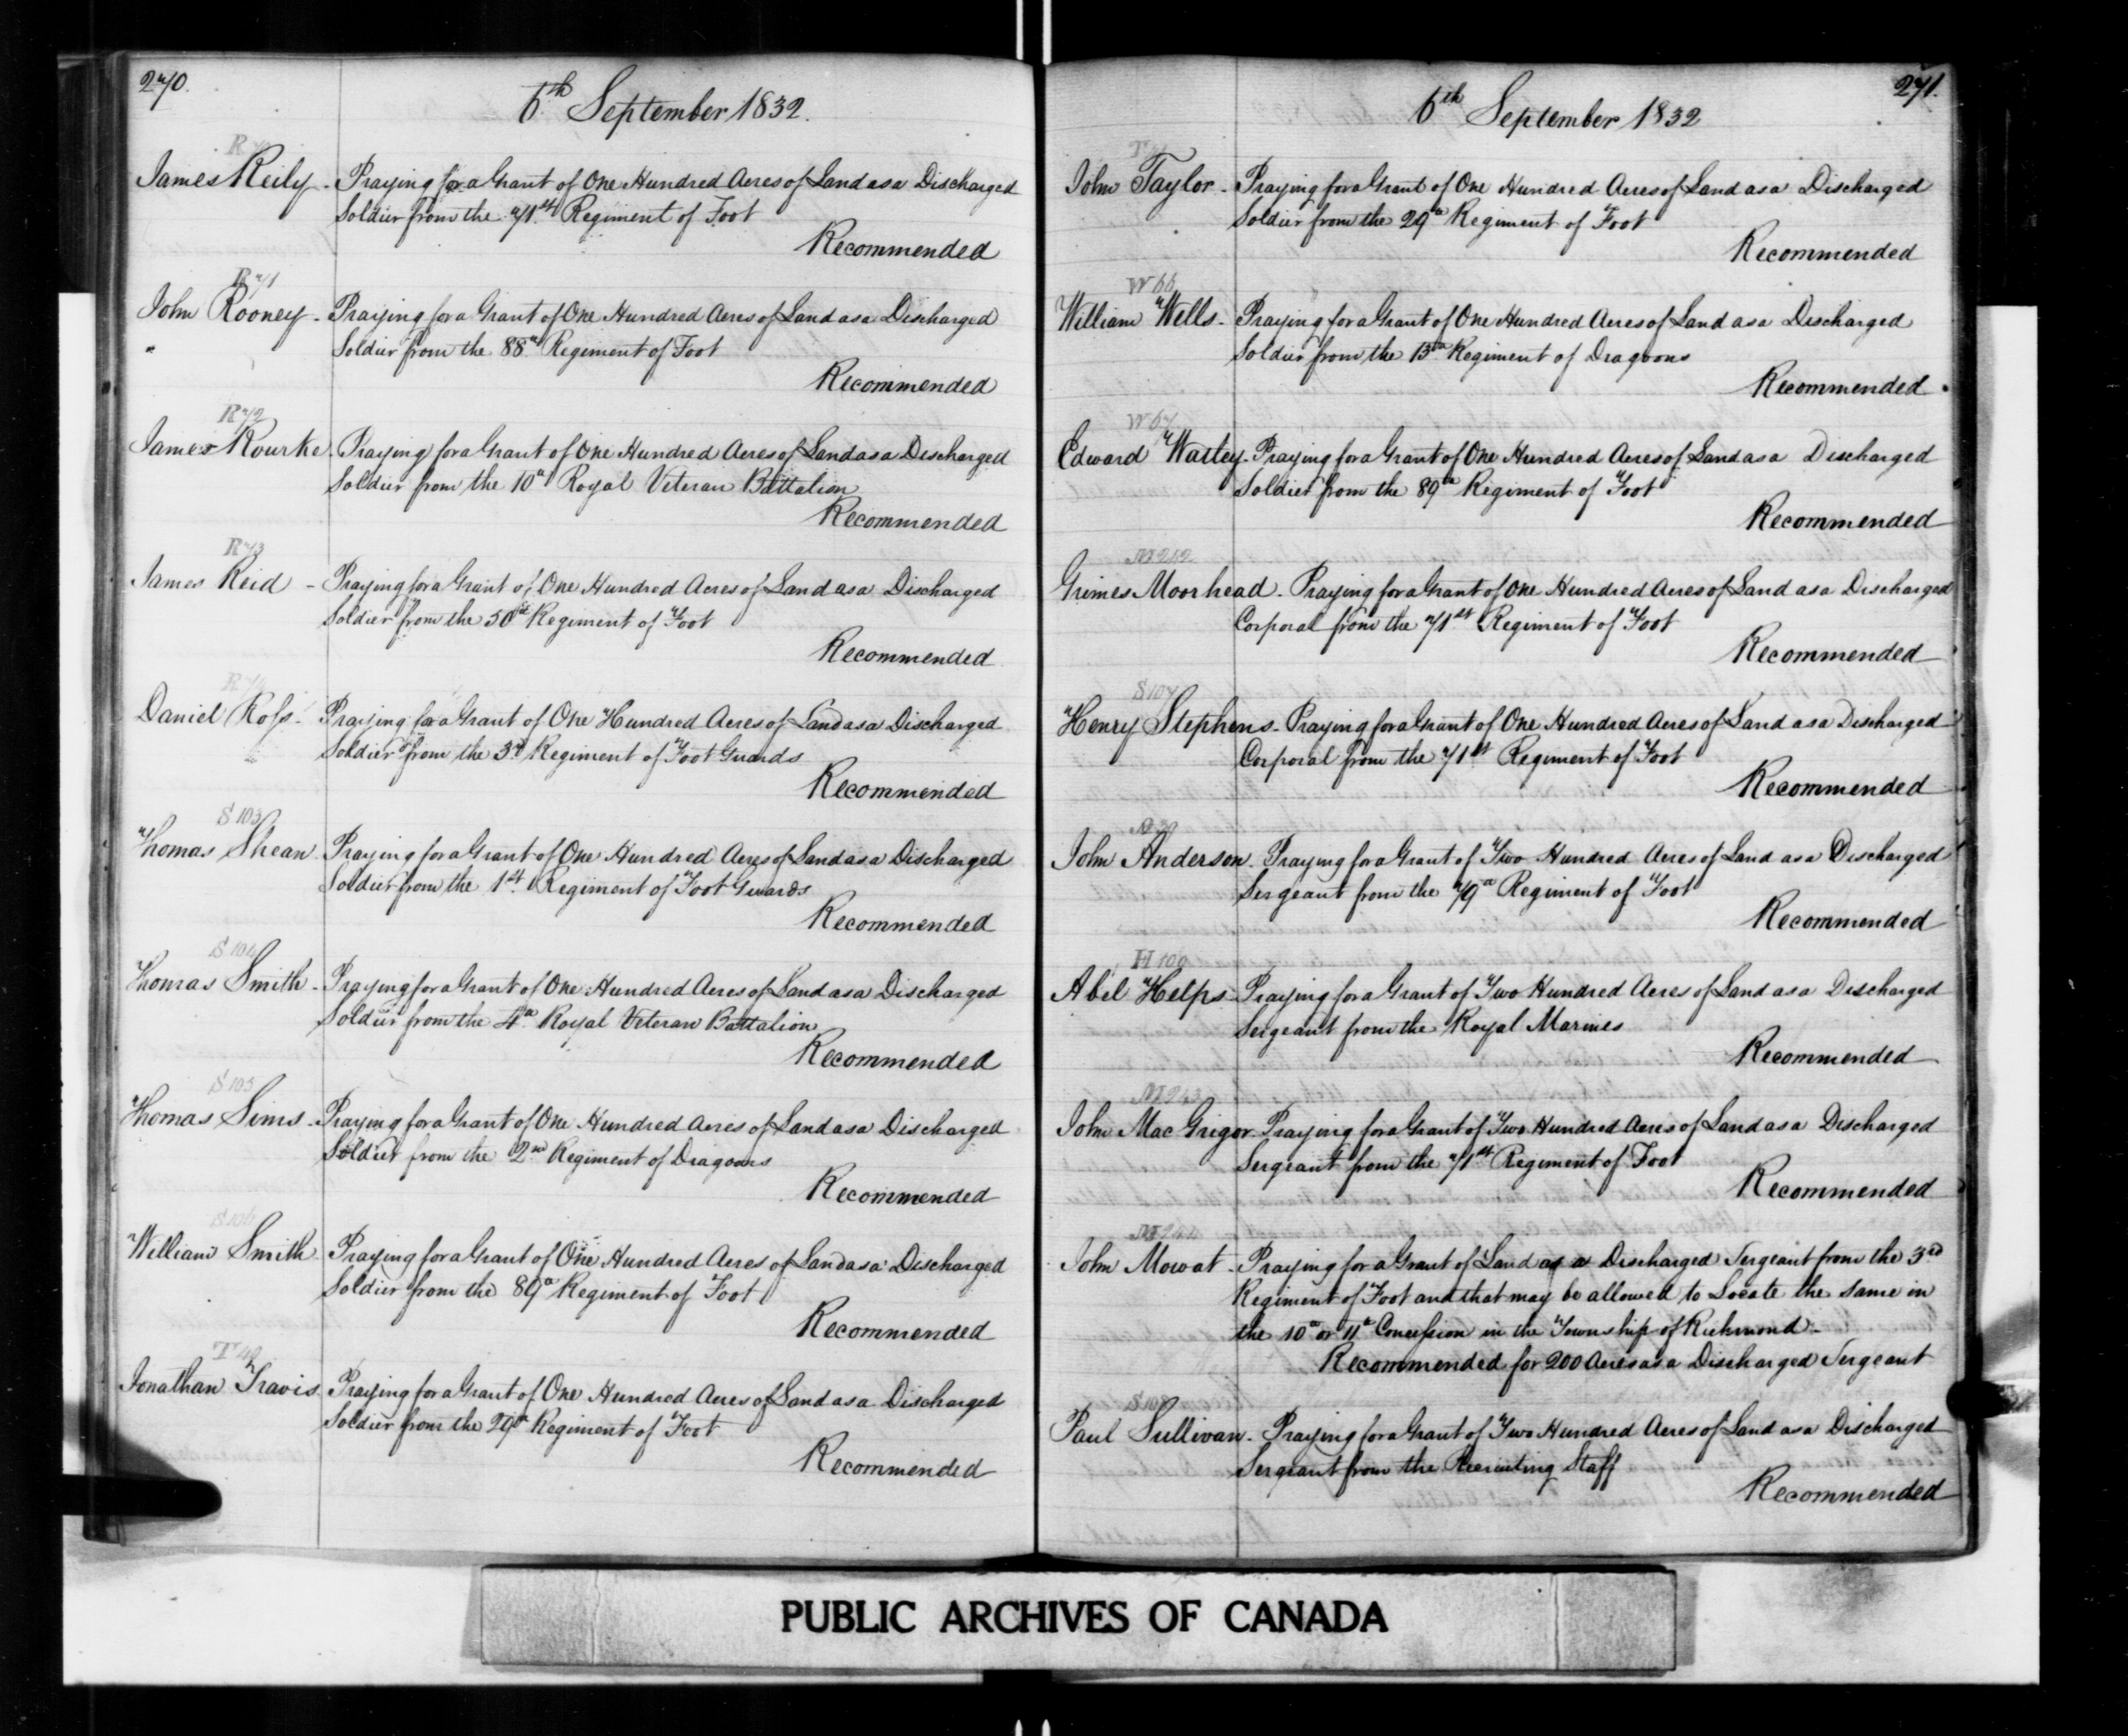 270.
6th September 1832.
R 70
James Reily - Praying for a Grant of One Hundred Acres of Land as a Discharged
Soldier from the 71st Regiment of Foot
Recommended
R 71
John Rooney - Praying for a Grant of One Hundred Acres of Land as a Discharged
Soldier from the 88th Regiment of Foot
Recommended
R 72
James Rourke. Praying for a Grant of One Hundred Acres of Land as a Discharged
Soldier from the 10th Royal Veteran Battalion
Recommended
R 73
James Reid - Praying for a Grant of One Hundred Acres of Land as a Discharged
Soldier from the Regiment of Foot
Recommended
R 74
Daniel Ross - Praying for a Grant of One Hundred Acres of Land as a Discharged
Soldier from the 3d Regiment of Foot Guards
Recommended
S 103
Thomas Shean Praying for a Grant of One Hundred Acres of Land as a Discharged
Soldier from the 1st Regiment of Foot Guards
Recommended
S 104
Thomas Smith - Praying for a Grant of One Hundred Acres of Land as a Discharged
Soldier from the 4th Royal Veteran Battalion
Recommended
S 105
Thomas Sims - Praying for a Grant of One Hundred Acres of Land as a Discharged
Soldier from the 2nd Regiment of Dragoons
Recommended
S 106
William Smith Praying for a Grant of One Hundred Acres of Land as a Discharged
Soldier from the 89th Regiment of Foot
Recommended
T 40
Jonathan Travis Praying for a Grant of One Hundred Acres of Land as a Discharged
Soldier from the 29th Regiment of Foot
Recommended
271.
6th September 1832
T 41
John Taylor - Praying for a Grant of One Hundred Acres of Land as a Discharged
Soldier from the 29th Regiment of Foot
Recommended
W 66
William Wells - Praying for a Grant of One Hundred Acres of Land as a Discharged
Soldier from the 13th Regiment of Dragoons
Recommended
W 67
Edward Watley - Praying for a Grant of One Hundred Acres of Land as a Discharged
Soldier from the 89th Regiment of Foot
Recommended
M 242
Grimes Moorhead - Praying for a Grant of One Hundred Acres of Land as a Discharged
Corporal from the 71st Regiment of Foot
Recommended
S 107
Henry Stephens - Praying for a Grant of One Hundred Acres of Land as a Discharged
Corporal from the 71st Regiment of Foot
Recommended
John Anderson - Praying for a Grant of Two Hundred Acres of Land as a Discharged
Sergeant from the 79th Regiment of Foot
Recommended
H 109
Abel Helps - Praying for a Grant of Two Hundred Acres of Land as a Discharged
Sergeant from the Royal Marines
Recommended
M 243
John Mac Grigor - Praying for a Grant of Two Hundred Acres of Land as a Discharged
Sergeant from the 71st Regiment of Foot
Recommended
M 244
John Mowat - Praying for a Grant of Land as a Discharged Sergeant from the 3rd
Regiment of Foot and that may be allowed to Locate the same in
the 10th or 11th Concession in the Township of Richmond -
Recommended for 200 Acres as a Discharged Sergeant
S 108
Paul Sullivan - Praying for a Grant of Two Hundred Acres of Land as a Discharged
Sergeant from the Recruiting Staff
Recommended
PUBLIC ARCHIVES OF CANADA